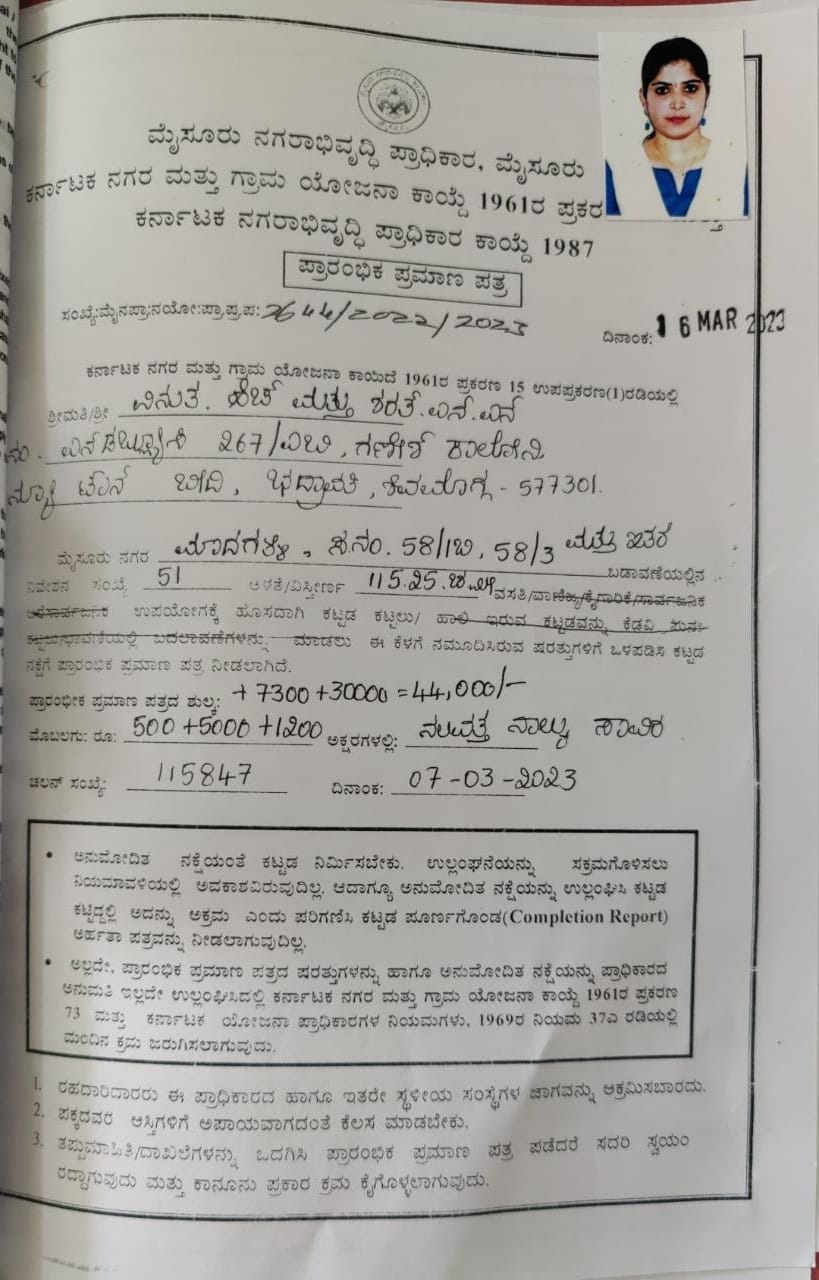 ಮೈಸೂರು ನಗರಾಭಿವೃದ್ಧಿ ಪ್ರಾಧಿಕಾರ, ಮೈಸೂರು
ಕರ್ನಾಟಕ ನಗರ ಮತ್ತು ಗ್ರಾಮ ಯೋಜನಾ ಕಾಯ್ದೆ 1961ರ ಪ್ರಕರ
ಕರ್ನಾಟಕ ನಗರಾಭಿವೃದ್ಧಿ ಪ್ರಾಧಿಕಾರ ಕಾಯ್ದೆ 1987
ಪ್ರಾರಂಭಿಕ ಪ್ರಮಾಣ ಪತ್ರ
ಸಂಖ್ಯೆ:ಮೈನಪ್ರಾ:ನಯೋ:ಪ್ರಾ.ಪ್ರ.ಪ: 2644/2022/2023
ದಿನಾಂಕ: 16 MAR 2023
ಕರ್ನಾಟಕ ನಗರ ಮತ್ತು ಗ್ರಾಮ ಯೋಜನಾ ಕಾಯಿದೆ 1961ರ ಪ್ರಕರಣ 15 ಉಪಪ್ರಕರಣ(1)ರಡಿಯಲ್ಲಿ
ಶ್ರೀಮತಿ/ಶ್ರೀ ವಿನುತ. ಹೆಚ್ ಮತ್ತು ಶರತ್.ಎನ್.ಎನ್
ನಂ. ಎನ್‌ಡಬ್ಲ್ಯೂಸಿ 267/ಎಬಿ, ಗಣೇಶ್ ಕಾಲೋನಿ
ನ್ಯೂ ಟೌನ್ ಬೀದಿ, ಭದ್ರಾವತಿ, ಶಿವಮೊಗ್ಗ - 577301.
ಮೈಸೂರು ನಗರ ಮಾದಗಳ್ಳಿ, ಸ.ನಂ. 58/1ಬಿ, 58/3 ಮತ್ತು ಇತರೆ ಬಡಾವಣೆಯಲ್ಲಿನ
ನಿವೇಶನ ಸಂಖ್ಯೆ 51 ಅಳತೆ/ವಿಸ್ತೀರ್ಣ 115.25 ಚ.ಮೀ ವಸತಿ/ವಾಣಿಜ್ಯ/ಕೈಗಾರಿಕೆ/ಸಾರ್ವಜನಿಕ
ಅರೆಸಾರ್ವಜನಿಕ ಉಪಯೋಗಕ್ಕೆ ಹೊಸದಾಗಿ ಕಟ್ಟಡ ಕಟ್ಟಲು/ ಹಾಲಿ ಇರುವ ಕಟ್ಟಡವನ್ನು ಕೆಡವಿ ಪುನಃ
ಕಟ್ಟಲು/ಛಾವಣಿಯಲ್ಲಿ ಬದಲಾವಣೆಗಳನ್ನು ಮಾಡಲು ಈ ಕೆಳಗೆ ನಮೂದಿಸಿರುವ ಷರತ್ತುಗಳಿಗೆ ಒಳಪಡಿಸಿ ಕಟ್ಟಡ
ನಕ್ಷೆಗೆ ಪ್ರಾರಂಭಿಕ ಪ್ರಮಾಣ ಪತ್ರ ನೀಡಲಾಗಿದೆ.
ಪ್ರಾರಂಭೀಕ ಪ್ರಮಾಣ ಪತ್ರದ ಶುಲ್ಕ: +7300+30000=44,000/-
ಮೊಬಲಗು: ರೂ: 500+5000+1200 ಅಕ್ಷರಗಳಲ್ಲಿ: ನಲವತ್ತ ನಾಲ್ಕು ಸಾವಿರ
ಚಲನ್ ಸಂಖ್ಯೆ: 115847 ದಿನಾಂಕ: 07-03-2023
• ಅನುಮೋದಿತ ನಕ್ಷೆಯಂತೆ ಕಟ್ಟಡ ನಿರ್ಮಿಸಬೇಕು. ಉಲ್ಲಂಘನೆಯನ್ನು ಸಕ್ರಮಗೊಳಿಸಲು
ನಿಯಮಾವಳಿಯಲ್ಲಿ ಅವಕಾಶವಿರುವುದಿಲ್ಲ. ಆದಾಗ್ಯೂ ಅನುಮೋದಿತ ನಕ್ಷೆಯನ್ನು ಉಲ್ಲಂಘಿಸಿ ಕಟ್ಟಡ
ಕಟ್ಟಿದ್ದಲ್ಲಿ ಅದನ್ನು ಅಕ್ರಮ ಎಂದು ಪರಿಗಣಿಸಿ ಕಟ್ಟಡ ಪೂರ್ಣಗೊಂಡ(Completion Report)
ಅರ್ಹತಾ ಪತ್ರವನ್ನು ನೀಡಲಾಗುವುದಿಲ್ಲ.
• ಅಲ್ಲದೇ, ಪ್ರಾರಂಭಿಕ ಪ್ರಮಾಣ ಪತ್ರದ ಷರತ್ತುಗಳನ್ನು ಹಾಗೂ ಅನುಮೋದಿತ ನಕ್ಷೆಯನ್ನು ಪ್ರಾಧಿಕಾರದ
ಅನುಮತಿ ಇಲ್ಲದೇ ಉಲ್ಲಂಘಿಸಿದಲ್ಲಿ ಕರ್ನಾಟಕ ನಗರ ಮತ್ತು ಗ್ರಾಮ ಯೋಜನಾ ಕಾಯ್ದೆ 1961ರ ಪ್ರಕರಣ
73 ಮತ್ತು ಕರ್ನಾಟಕ ಯೋಜನಾ ಪ್ರಾಧಿಕಾರಗಳ ನಿಯಮಗಳು, 1969ರ ನಿಯಮ 37ಎ ರಡಿಯಲ್ಲಿ
ಮುಂದಿನ ಕ್ರಮ ಜರುಗಿಸಲಾಗುವುದು.
1. ರಹದಾರಿದಾರರು ಈ ಪ್ರಾಧಿಕಾರದ ಹಾಗೂ ಇತರೇ ಸ್ಥಳೀಯ ಸಂಸ್ಥೆಗಳ ಜಾಗವನ್ನು ಆಕ್ರಮಿಸಬಾರದು.
2. ಪಕ್ಕದವರ ಆಸ್ತಿಗಳಿಗೆ ಅಪಾಯವಾಗದಂತೆ ಕೆಲಸ ಮಾಡಬೇಕು.
3. ತಪ್ಪುಮಾಹಿತಿ/ದಾಖಲೆಗಳನ್ನು ಒದಗಿಸಿ ಪ್ರಾರಂಭಿಕ ಪ್ರಮಾಣ ಪತ್ರ ಪಡೆದರೆ ಸದರಿ ಸ್ವಯಂ
ರದ್ದಾಗುವುದು ಮತ್ತು ಕಾನೂನು ಪ್ರಕಾರ ಕ್ರಮ ಕೈಗೊಳ್ಳಲಾಗುವುದು.